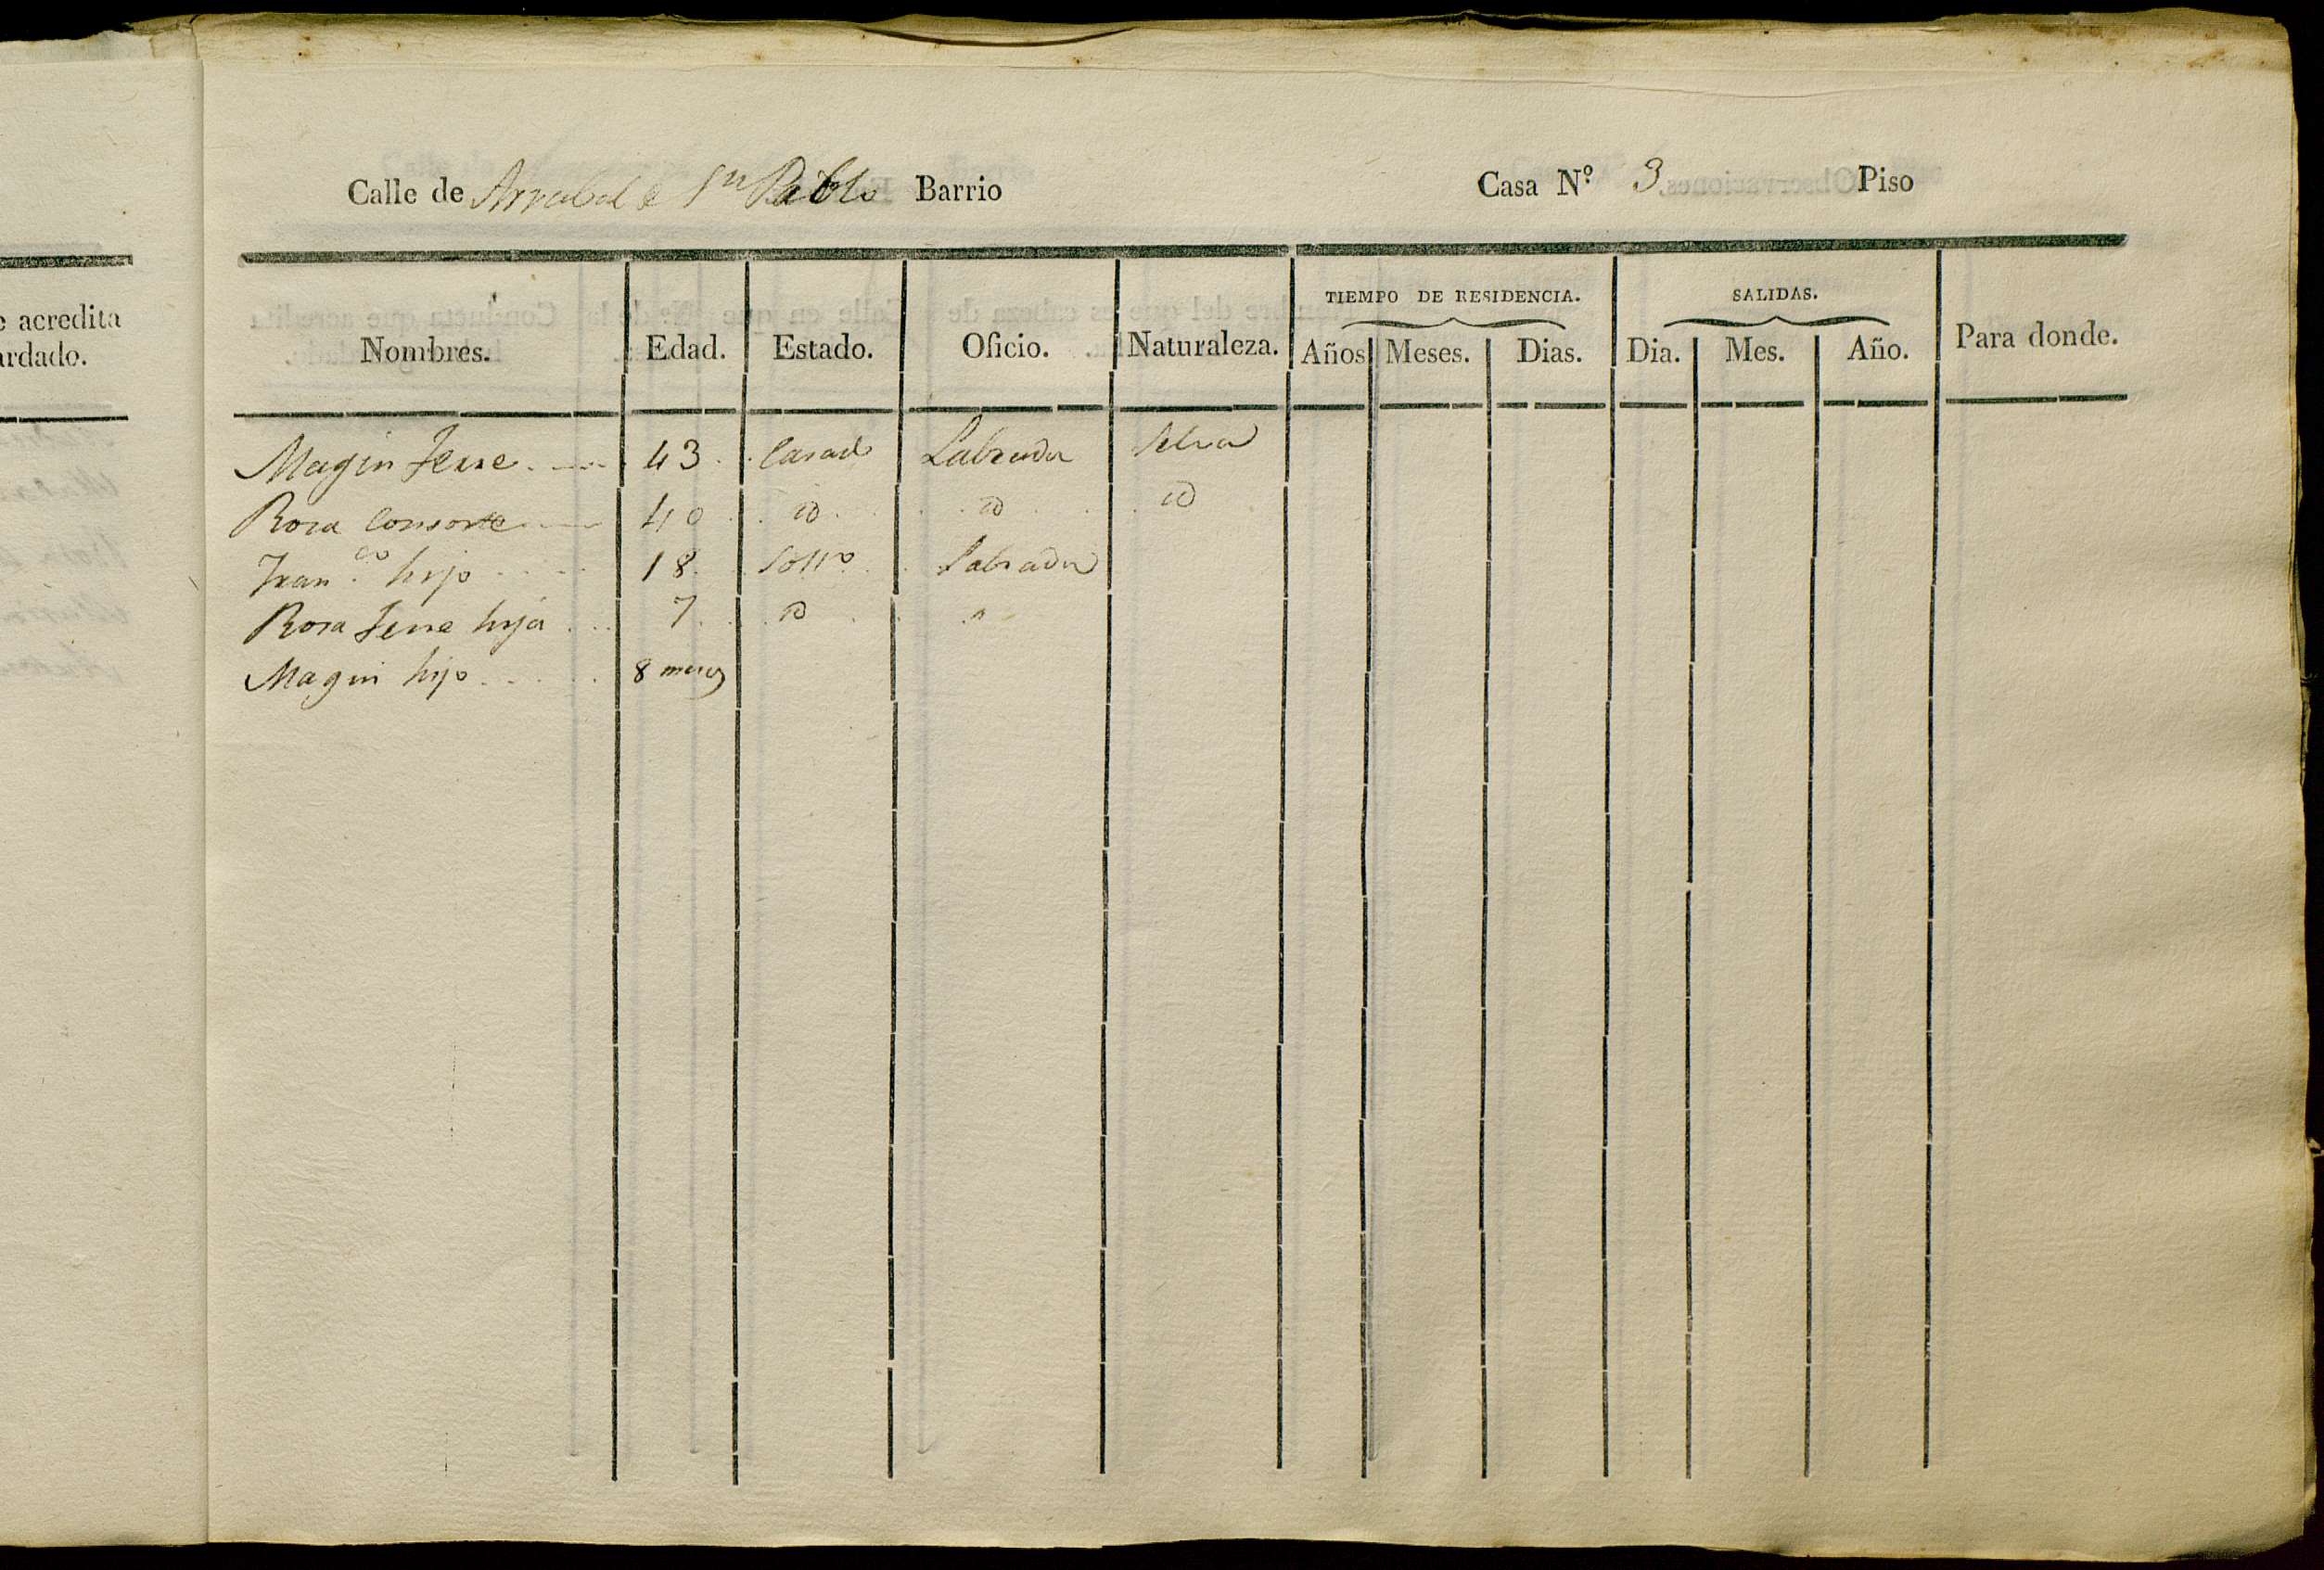 e acredita
ardado.
Calle de Arrabal de Sn Pablo Barrio Casa Nº 3 Piso
TIEMPO DE RESIDENCIA. SALIDAS.
Nombres. Edad. Estado. Oficio. Naturaleza. Años Meses. Dias. Dia. Mes. Año. Para donde.
Magin 43 Casado Labrador Selva
Rosa Consorte 40 id id id
Franco hijo 18 Soltro Labrador
Rosa hija 7 id "
Magin hijo 8 meses